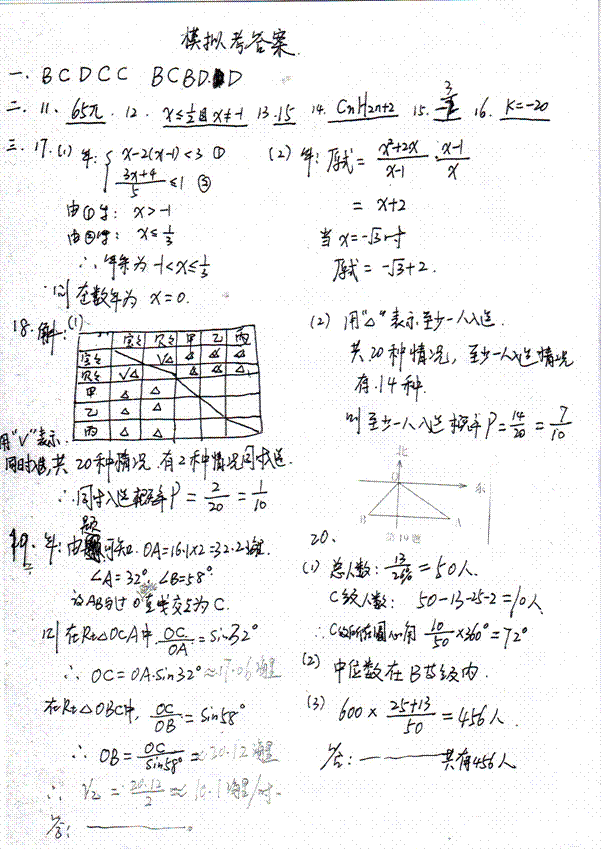 模拟考答案.
一. B C D C C B C B D D
二. 11. 65π. 12. x≤½且x≠-1 13. 15 14. CnH2n+2 15. 3 16. K=-20
三. 17. (1) 解: { x-2(x-1)<3 ① (2) 解: 原式 = (x²+2x)/(x-1) · (x-1)/x
(3x+4)/5 ≤1 ② = x+2
由①得: x>-1 当x=-√3时
由②得: x≤1/3 原式 = -√3+2.
∴ 解集为 -1<x≤1/3
则 在数解为 x=0.
18. 解: (1)
甲 乙 丙
√△ △ △ △
√△ △ △ △
甲 △ △
乙 △ △
丙 △ △
用"√"表示
同时入选, 共20种情况. 有2种情况同时入选.
∴ 同时入选概率P = 2/20 = 1/10
(2) 用"△"表示至少一人入选
共20种情况, 至少一人入选情况
有14种.
则至少一人入选概率P = 14/20 = 7/10
北
O
东
B A
第19题
19. 解: 由题可知. OA=16.1×2=32.2海里
∠A=32° ∠B=58°
设AB与过O直线交点为C.
则在Rt△OCA中, OC/OA = sin32°
∴ OC=OA·sin32° ≈17.06海里
在Rt△OBC中, OC/OB = sin58°
∴ OB = OC/sin58° ≈ 20.12海里
∴ V₂ = 20.12/2 ≈ 10.1海里/时
答:
20.
(1) 总人数: 13/26% = 50人.
C级人数: 50-13-25-2=10人
∴ C级所在圆心角 10/50×360°=72°
(2) 中位数在B等级内.
(3) 600 × (25+13)/50 = 456人.
答: 共有456人